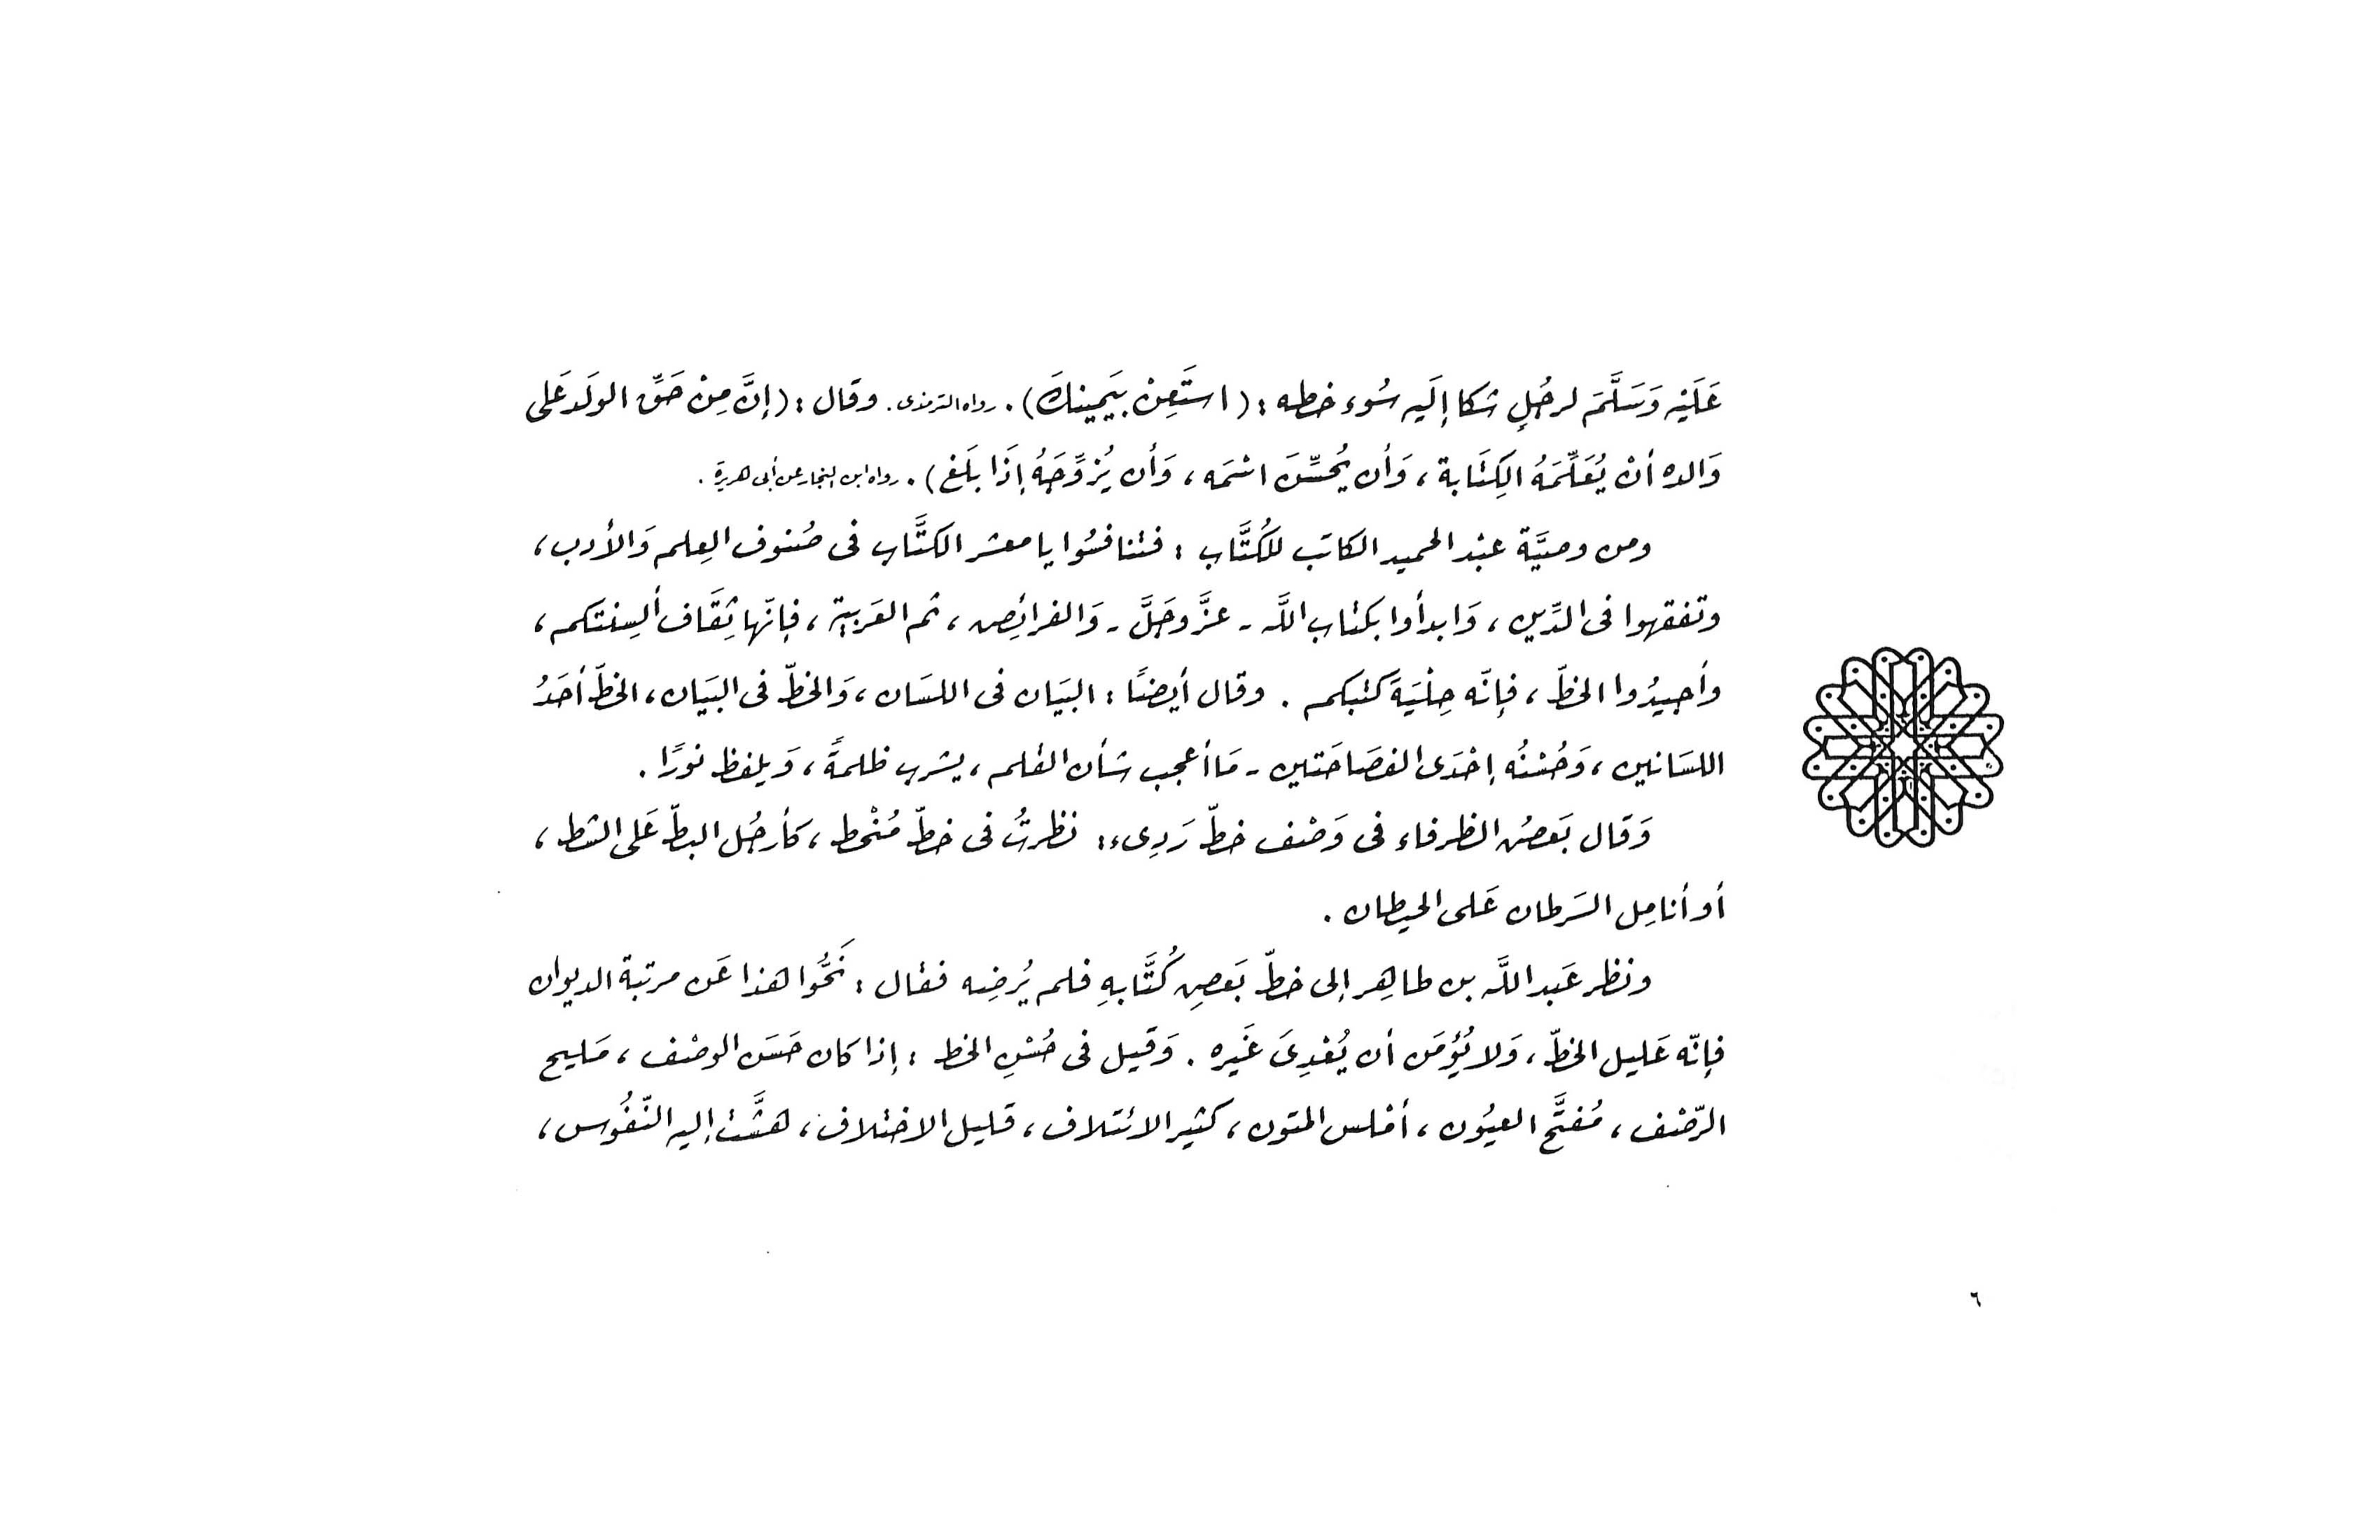 عَلَيْهِ وَسَلَّمَ لرجُلٍ شكا إلَيه سُوء خطه : ( استَعِنْ بيَمينكَ ) . رواه الترمذى . وقال : ( إنَّ مِنْ حَقِّ الولَد عَلى
وَالده أنْ يُعَلِّمَهُ الكِتَابة ، وَأن يُحسِّنَ اسْمَه ، وَأن يُزوِّجَهُ إذَا بلَغ ) . رواه ابن النجار عن أبى هريرة .
ومن وصيَّة عبْد الحميد الكاتب للكُتَّاب : فتنافسُوا يا معشر الكتَّاب فى صُنوف العِلم وَالأدب ،
وتفقهوا فى الدِّين ، وَابدأوا بكتاب اللَّه - عزَّ وجَلَّ - وَالفرائِض ، ثم العَربية ، فإنّها ثِقَاف ألسِنتكم ،
وأجيدُوا الخطّ ، فإنّه حِلْيَة كتبكم . وقال أيضًا : البيَان فى اللسَان ، وَالخطّ فى البيَان ، الخطّ أحَدُ
اللسَانين ، وَحُسْنُه إحْدَى الفصَاحَتين - مَا أعجب شأن القلم ، يشرب ظلمةً ، وَيلفظ نورًا .
وَقال بَعضُ الظرفاء فى وَصْف خطّ رَدِىء : نظرتُ فى خطّ مُنْحط ، كأرجُل البطّ عَلى الشط ،
أو أنامِل السَرطان عَلى الحيطان .
ونظر عَبد اللَّه بن طاهِر إلى خطّ بَعضِ كُتَّابهِ فلم يُرضِه فقال : نَحُّوا هذا عَن مرتبة الديوان
فإنّه عَليل الخطّ ، وَلا يُؤمَن أن يُعْدِىَ غَيره . وَقيل فى حُسْنِ الخط : إذا كان حَسَن الوصْف ، مَليح
الرّصْف ، مُفتَّح العيُون ، أمْلس المتون ، كثير الائتلاف ، قليل الاختلاف ، هشَّت إليه النّفُوس ،
٦